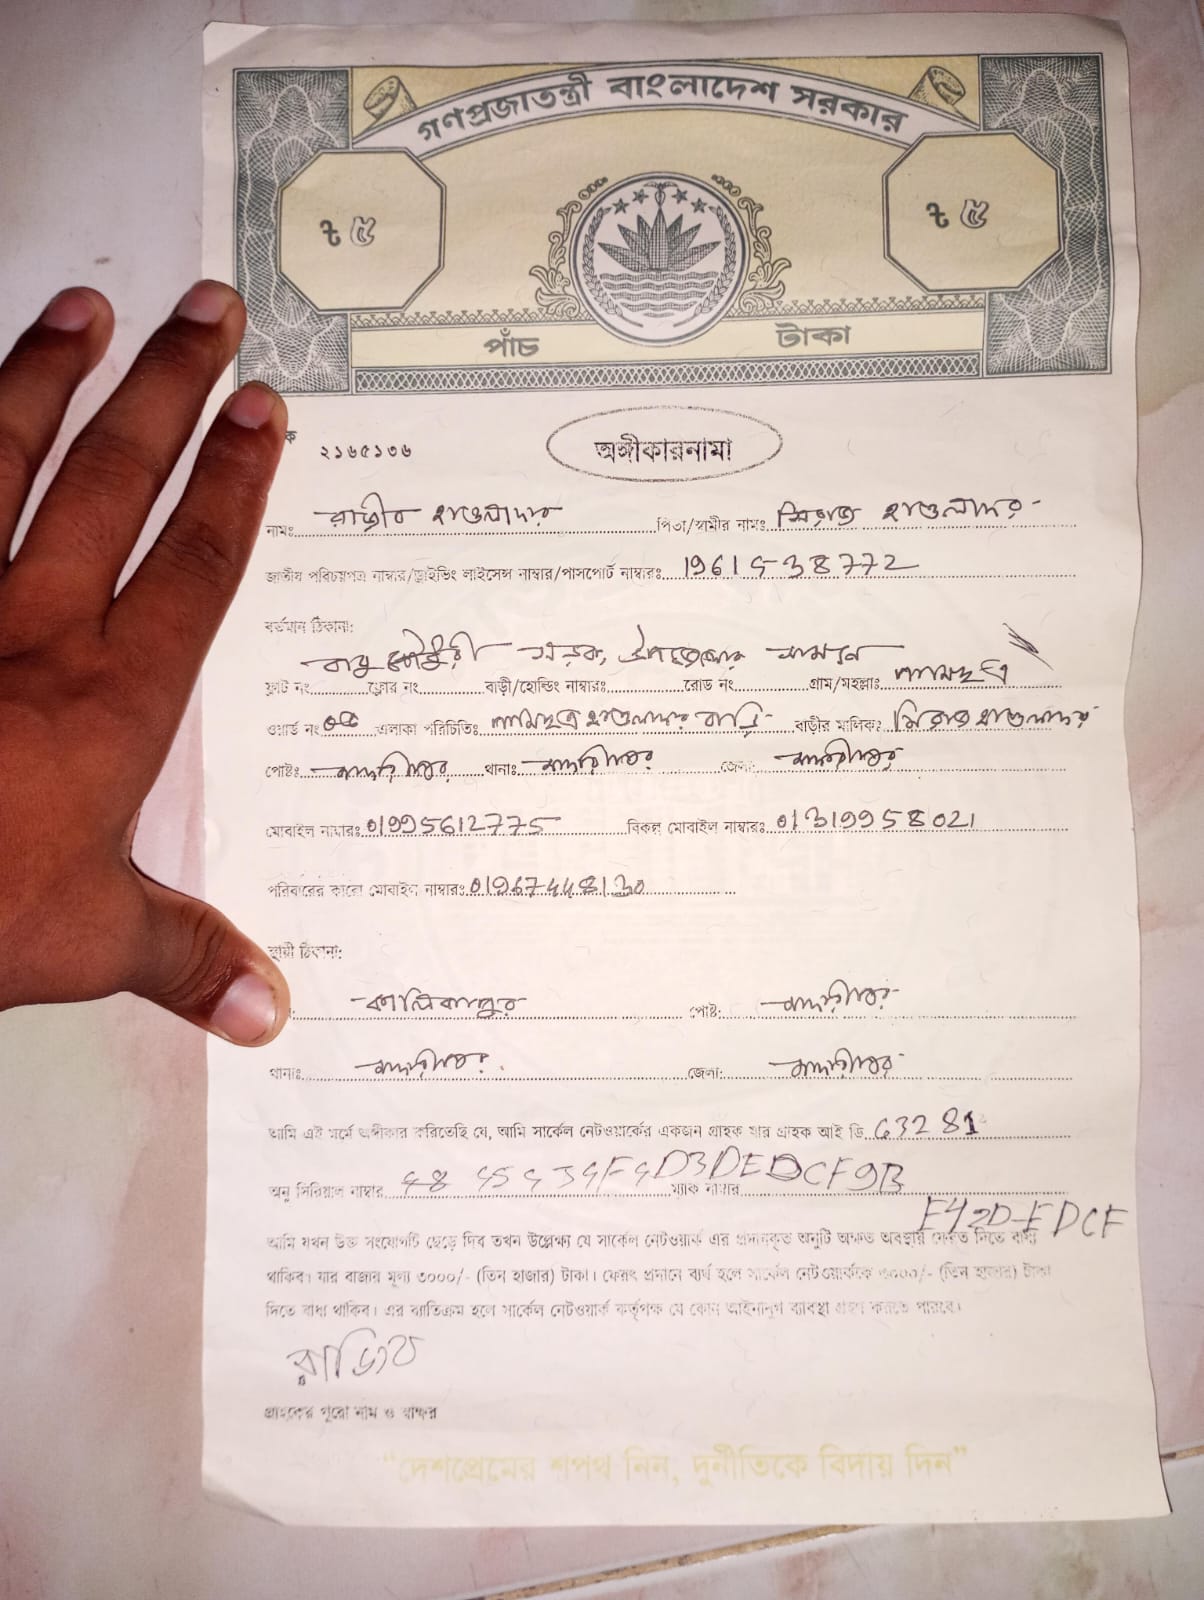 গণপ্রজাতন্ত্রী বাংলাদেশ সরকার
৳ ৫ ৳ ৫
পাঁচ টাকা
ক ২১৬৫১৩৬
অঙ্গীকারনামা
নামঃ রাজীব হাওলাদার পিতা/স্বামীর নামঃ সিরাজ হাওলাদার
জাতীয় পরিচয়পত্র নাম্বার/ড্রাইভিং লাইসেন্স নাম্বার/পাসপোর্ট নাম্বারঃ 1961538772
বর্তমান ঠিকানা:
বাবু চৌধুরী সড়ক, উপজেলার সামনে
ফ্লাট নং ফ্লোর নং বাড়ী/হোল্ডিং নাম্বারঃ রোড নং গ্রাম/মহল্লাঃ
ওয়ার্ড নং এলাকা পরিচিতিঃ হাওলাদার বাড়ি বাড়ীর মালিকঃ সিরাজ হাওলাদার
পোষ্টঃ মাদারীপুর থানাঃ মাদারীপুর জেলা: মাদারীপুর
মোবাইল নাম্বারঃ 01995612775 বিকল্প মোবাইল নাম্বারঃ 01319958021
পরিবারের কারো মোবাইল নাম্বারঃ
স্থায়ী ঠিকানা:
কালিকাপুর পোষ্ট: মাদারীপুর
থানাঃ মাদারীপুর জেলা: মাদারীপুর
আমি এই মর্মে অঙ্গীকার করিতেছি যে, আমি সার্কেল নেটওয়ার্কের একজন গ্রাহক যার গ্রাহক আই ডি 63281
অনু সিরিয়াল নাম্বার ম্যাক নাম্বার
E42D-EDCF
আমি যখন উক্ত সংযোগটি ছেড়ে দিব তখন উল্লেখ্য যে সার্কেল নেটওয়ার্ক এর প্রদানকৃত অনুটি অক্ষত অবস্থায় ফেরত দিতে বাধ্য
থাকিব। যার বাজার মূল্য ৩০০০/- (তিন হাজার) টাকা। ফেরৎ প্রদানে ব্যর্থ হলে সার্কেল নেটওয়ার্ককে ৩০০০/- (তিন হাজার) টাকা
দিতে বাধ্য থাকিব। এর ব্যতিক্রম হলে সার্কেল নেটওয়ার্ক কর্তৃপক্ষ যে কোন আইনানুগ ব্যাবস্থা গ্রহণ করতে পারবে।
রাজিব
গ্রাহকের পুরো নাম ও স্বাক্ষর
“দেশপ্রেমের শপথ নিন, দুর্নীতিকে বিদায় দিন”